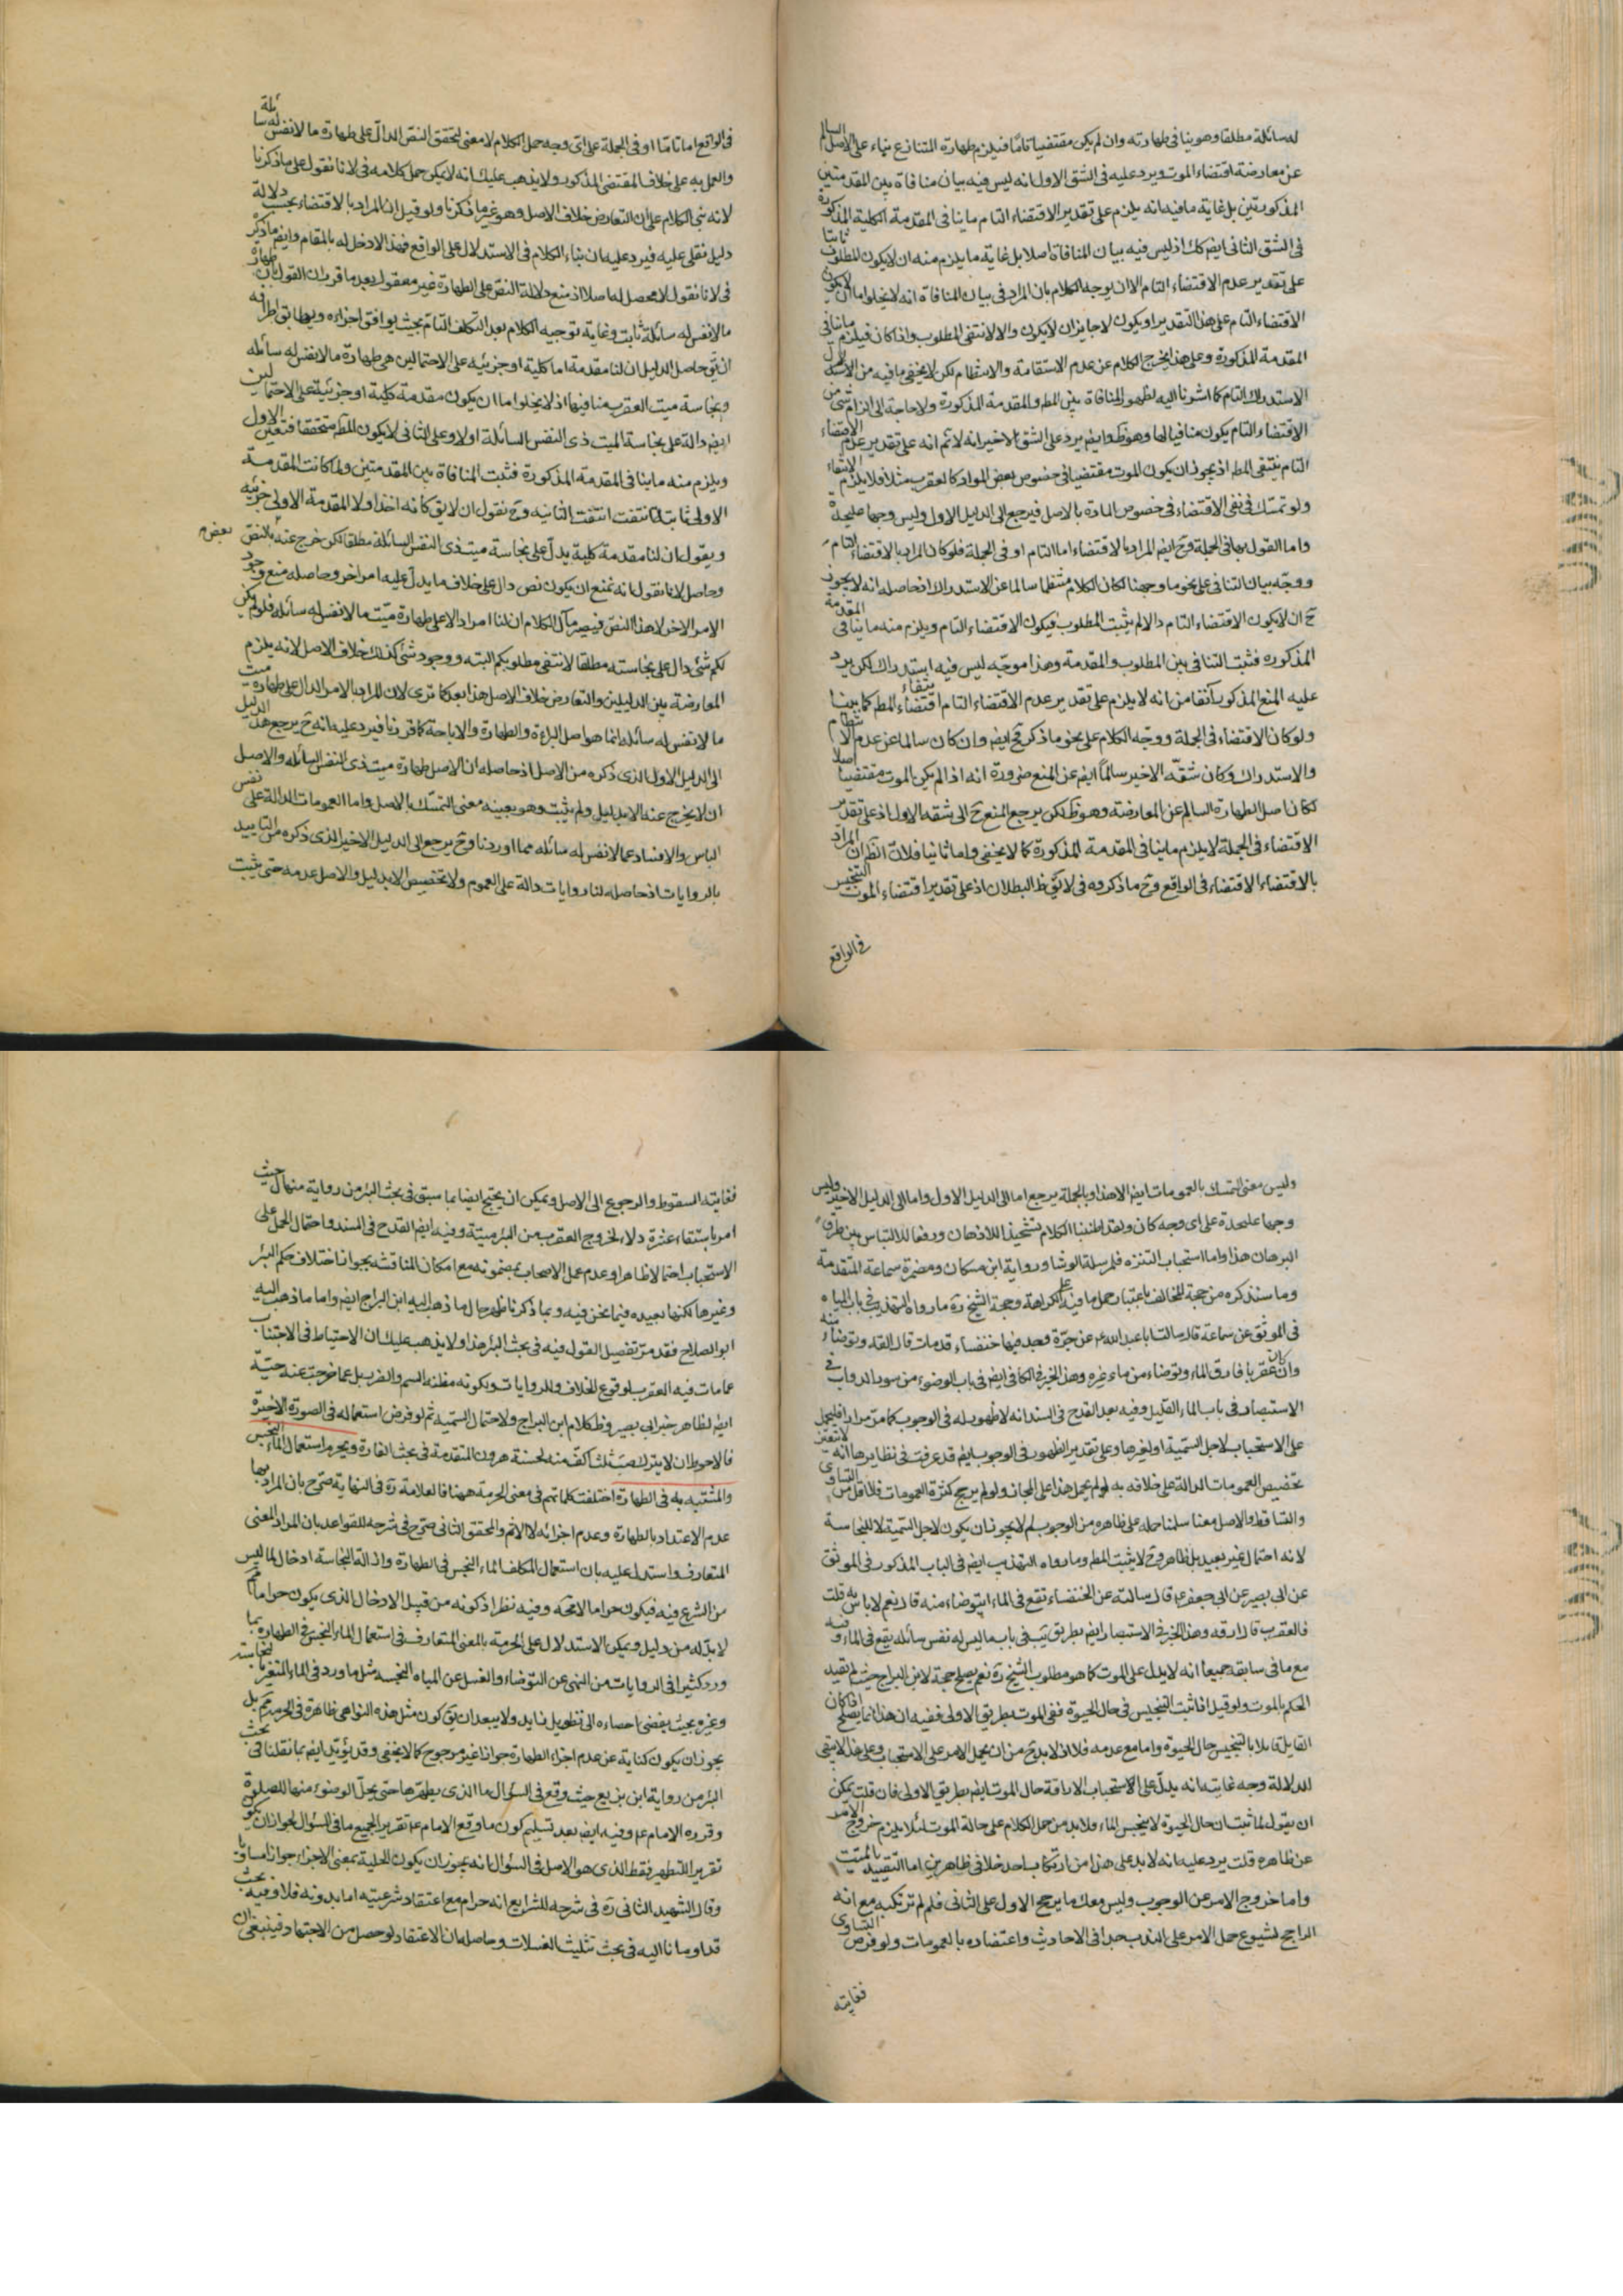 له سائلة مطلقا وهو ينافى طهارته وان لم يكن مقتضيا تاما فيلزم طهارة المتنازع بناء على الاصل السالم
عن معارضة اقتضاء الموت ويرد عليه فى الشق الاول انه ليس فيه بيان منافاة بين المقدمتين
المذكورتين بل غاية ما فيه انه يلزم على تقدير الاقتضاء التام ما ينافى المقدمة الكلية المذكورة
فى الشق الثانى ايض كك اذ ليس فيه بيان المنافاة اصلا بل غاية ما يلزم منه ان لا يكون المطلوب ثابتا
على تقدير عدم الاقتضاء التام الا ان يوجه الكلام بان المراد فى بيان المنافاة انه لا يخلو اما ان لا يكون
الاقتضاء التام على هذا التقدير او يكون لا جايز ان لا يكون والا لانتفى المطلوب واذا كان فيلزم ما ينافى
المقدمة المذكورة وعلى هذا يخرج الكلام عن عدم الاستقامة والانتظام لكن لا يخفى ما فيه من
الاستدراك التام كما اشرنا اليه لظهور المنافاة بين المط والمقدمة المذكورة ولا حاجة الى التزام شئ من
الاقتضاء التام يكون منافيا لها وهو ظ وايض يرد على الشق الاخير انه لا تم انه على تقدير عدم الاقتضاء
التام ينتفى المط اذ يجوز ان يكون الموت مقتضيا فى خصوص بعض المواد كالعقرب مثلا فلا يلزم الانتفاء
ولو تمسك فى نفى الاقتضاء فى خصوص المادة بالاصل فيرجع الى الدليل الاول وليس وجها عليحدة
واما القول بها فى الجملة وح ايض المراد بالاقتضاء اما التام او فى الجملة فلو كان المراد بالاقتضاء التام
ووجه بيان التنافى على نحو ما وجهنا لكان الكلام منتظما سالما عن الاستدراك اذ حاصله انه لا يجوز
ح ان لا يكون الاقتضاء التام والا لم يثبت المطلوب فيكون الاقتضاء التام ويلزم منه ما ينافى المقدمة
المذكوره فثبت التنافى بين المطلوب والمقدمة وهذا موجه ليس فيه استدراك لكن يرد
عليه المنع المذكور آنفا من انه لا يلزم على تقدير عدم الاقتضاء التام انتفاء المط كما بينا
ولو كان الاقتضاء فى الجملة ووجه الكلام على نحو ما ذكر فح ايض وان كان سالما عن عدم الانتظام
والاستدراك وكان شقه الاخير سالما ايض عن المنع ضرورة انه اذا لم يكن الموت مقتضيا اصلا
لكان اصل الطهارة السالم عن المعارضة وهو ظ لكن يرجع المنع ح الى شقه الاول اذ على تقدير
الاقتضاء فى الجملة لا يلزم ما ينافى المقدمة المذكورة كما لا يخفى واما ثانيا فلان الظ ان المراد
بالاقتضاء الاقتضاء فى الواقع وح ما ذكروه فى لا يق ظ البطلان اذ على تقدير اقتضاء الموت التنجيس
فى الواقع
فى الواقع اما تاما او فى الجملة على اى وجه حمل الكلام لا معنى لتحقق النص الدال على طهارة ما لا نفس له سائلة
والعمل به على خلاف المقتضى المذكور ولا يذهب عليك انه لا يمكن حمل كلامه فى لانا نقول على ما ذكرنا
لانه بنى الكلام على ان التعارض خلاف الاصل وهو غير ما ذكرنا ولو قيل ان المراد بالاقتضاء بحسب دلالة
دليل نقلى عليه فيرد عليه ان بناء الكلام فى الاستدلال على الواقع فهذا لا دخل له بالمقام وايض ما ذكره
فى لانا نقول لا محصل له اصلا اذ منع دلالة النص على الطهارة غير معقول بعد ما قرر ان القول بان طهارة
ما لا نفس له سائلة ثابت وغاية توجيه الكلام بعد التكلف التام بحيث يوافق اجزاءه ويطابق اطرافه
ان يق حاصل الدليل ان لنا مقدمة اما كلية او جزئيه على الاحتمالين هى طهارة ما لا نفس له سائله
ونجاسة ميت العقرب منافيها اذ لا يخلو اما ان يكون مقدمة كلية او جزئية على الاحتمالين
ايض دالة على نجاسة الميت ذى النفس السائلة اولا وعلى الثانى لا يكون المط متحققا فتعين الاول
ويلزم منه ما ينافى المقدمة المذكورة فثبت المنافاة بين المقدمتين ولما كانت المقدمة
الاولى ثابتة انتفت الثانيه وح نقول ان لا يق كانه اخذ اولا المقدمة الاولى جزئيه
ويقول ان لنا مقدمة كلية يدل على نجاسة ميت ذى النفس السائلة مطلقا لكن خرج عنه بالنص بعض
وحاصل لانا نقول انه نمنع ان يكون نص دال على خلاف ما يدل عليه امر اخر وحاصله منع وجود
الامر الاخر لا هذا النص فيصير مآل الكلام ان لنا امر ادالا على طهارة ميت ما لا نفس له سائله فلو لم يكن
لكم شئ دال على نجاسته مطلقا لانتفى مطلوبكم البته ووجود شئ كذلك خلاف الاصل لانه يلزم
المعارضة بين الدليلين والتعارض خلاف الاصل هذا بعد كما ترى لان المراد بالامر الدال على طهارة ميت
ما لا نفس له سائله انما هو اصل البراءة والطهارة والاباحة كما قررنا فيرد عليه انه ح يرجع هذا الدليل
الى الدليل الاول الذى ذكره من الاصل اذ حاصله ان الاصل طهارة ميت ذى النفس السائله والاصل
ان لا يخرج عنه الا بدليل ولم يثبت وهو بعينه معنى التمسك بالاصل واما العمومات الدالة على نفى
الباس والافساد عما لا نفس له سائله مما اوردنا وح يرجع الى الدليل الاخير الذى ذكره من التاييد
بالروايات اذ حاصله لنا روايات دالة على العموم ولا تخصيص الا بدليل والاصل عدمه حتى يثبت
وليس معنى التمسك بالعمومات ايض الا هذا وبالجملة يرجع اما الى الدليل الاول واما الى الدليل الاخير وليس
وجها عليحدة على اى وجه كان ولقد اطنبنا الكلام تشحيذا للاذهان ودفعا للالتباس بين طرق
البرهان هذا واما استحباب التنزه فلمرسلة الوشا ورواية ابن مسكان ومضمرة سماعة المتقدمة
وما سنذكره من حجة المخالف باعتبار حمل ما فيه على الكراهة وحجة الشيخ ره ما رواه التهذيب فى باب المياه
فى الموثق عن سماعة قال سالت ابا عبد الله ع عن جرة وجد فيها خنفساء قد مات قال القه وتوضاء منه
وان كان عقربا فارق الماء وتوضاء من ماء غيره وهذا الخبر فى الكافى ايض فى باب الوضوء من سور الدواب وفى
الاستبصار فى باب الماء القليل وفيه بعد القدح فى السند انه لا ظهور له فى الوجوب كما مر مرارا فليحمل
على الاستحباب لاجل السمية او لغيرها وعلى تقدير الظهور فى الوجوب ايض قد عرفت فى نظايرها انه
تخصيص العمومات الدالة على خلافه به لو لم يحمل هذا على المجاز ولو لم يرجح كثرة العمومات فلا اقل من التساوى
والتساقط والاصل معنا سلمنا حمله على ظاهره من الوجوب لم لا يجوز ان يكون لاجل السمية لا للنجاسة
لانه احتمال غير بعيد بل ظاهر وح لا يثبت المط وما رواه التهذيب ايض فى الباب المذكور فى الموثق
عن ابى بصير عن ابى جعفر ع قال سالته عن الخنفساء تقع فى الماء ايتوضاء منه قال نعم لا باس به قلت
فالعقرب قال ارقه وهذا الخبر فى الاستبصار ايض بطريق فى باب ما ليس له نفس سائله يقع فى الماء وفيه
مع ما فى سابقه جميعا انه لا يدل على الموت كما هو مطلوب الشيخ ره نعم يصلح حجة لابن البراج حيث لم يقيد
الحكم بالموت ولو قيل اذا ثبت التنجيس فى حال الحيوة ففى الموت بطريق الاولى ففيه ان هذا انما يصلح اذا كان
القايل قايلا بالتنجيس حال الحيوة واما مع عدمه فلا اذ لا بد ح من ان يحمل الامر على الاستحباب وعلى هذا لا يبقى
للدلالة وجه غايته انه يدل على الاستحباب الاراقة حال الموت ايض بطريق الاولى فان قلت يمكن
ان يقول لما ثبت ان حال الحيوة لا ينجس الماء فلا بد من حمل الكلام على حالة الموت لئلا يلزم خروج الامر
عن ظاهره قلت يرد عليه انه لا بد على هذا من ارتكاب احد خلافى ظاهرين اما التقييد بالميت
واما خروج الامر عن الوجوب وليس معك ما يرجح الاول على الثانى فلم لم ترتكبه مع انه
الراجح لشيوع حمل الامر على الندب جدا فى الاحاديث واعتضاده بالعمومات ولو فرض التساوى
فغايته
فغايته السقوط والرجوع الى الاصل ويمكن ان يحتج ايضا بما سبق فى بحث البئر من رواية منهال حيث
امر باستقاء عشرة دلاء لخروج العقرب من البئر ميتة وفيه ايض القدح فى السند واحتمال الحمل على
الاستحباب احتمالا ظاهرا وعدم عمل الاصحاب بمضمونه مع امكان المناقشه بجواز اختلاف حكم البئر
وغيرها لكنها بعيده فيما نحن فيه وبما ذكرنا ظهر حال ما ذهب اليه ابن البراج ايض واما ما ذهب اليه
ابو الصلاح فقد مر تفصيل القول فيه فى بحث البئر هذا ولا يذهب عليك ان الاحتياط فى الاجتناب
عما مات فيه العقرب لوقوع الخلاف والروايات ولكونه مظنه السم والضرر بل عما خرجت عنه حية
ايض لظاهر خبر ابى بصير وظ كلام ابن البراج ولاحتمال السمية ثم لو فرض استعماله فى الصورة الاخيرة
فالاحوط ان لا يترك صب ثلث اكف منه لحسنة هرون المتقدمة فى بحث الفارة ويحرم استعمال الماء النجس
والمشتبه به فى الطهارة اختلفت كلماتهم فى معنى الحرمة ههنا فالعلامة ره فى النهاية صرح بان المراد بها
عدم الاعتداد بالطهارة وعدم اجزائه لا الاثم والمحقق الثانى صرح فى شرحه للقواعد بان المراد المعنى
المتعارف واستدل عليه بان استعمال المكلف الماء النجس فى الطهارة وازالة النجاسة ادخال لما ليس
من الشرع فيه فيكون حراما لا محة وفيه نظر اذ كونه من قبيل الادخال الذى يكون حراما مم
لا بد له من دليل ويمكن الاستدلال على الحرمة بالمعنى المتعارف فى استعمال الماء النجس فى الطهارة بما
ورد كثيرا فى الروايات من النهى عن التوضاء والغسل عن المياه النجسه مثل ما ورد فى الماء المتغير بالنجاسة
وغيره بحيث يفضى احصاءه الى تطويل زايد ولا يبعد ان يق كون مثل هذه النواهى ظاهرة فى الحرمة مم بل
يجوز ان يكون كناية عن عدم اجزاء الطهارة جوازا غير مرجوح كما لا يخفى وقد يؤيد ايض بما نقلنا فى بحث
البئر من رواية ابن بزيع حيث وقع فى السؤال ما الذى يطهرها حتى يحل الوضوء منها للصلوة
وقرره الامام ع وفيه ايض بعد تسليم كون ما وقع الامام ع تقرير الجميع ما فى السؤال لجواز ان يكون
تقرير التطهير فقط الذى هو الاصل فى السؤال انه يجوز ان يكون الحلية بمعنى الاجزاء جوازا مساويا
وقال الشهيد الثانى ره فى شرحه للشرايع انه حرام مع اعتقاد شرعيته اما بدونه فلا وفيه بحث
قد اومانا اليه فى بحث تثليث الغسلات وحاصله ان الاعتقاد لو حصل من الاجتهاد فينبغى ان